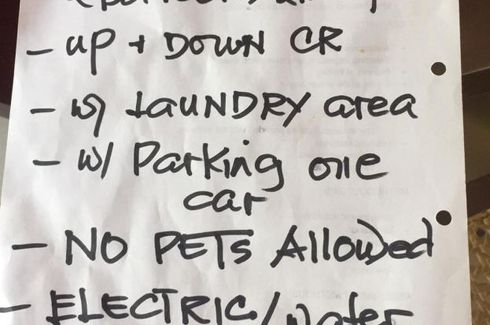 - UP + DOWN CR
- w/ LAUNDRY area
- w/ Parking one
car
- NO PETS Allowed
- ELECTRIC/water